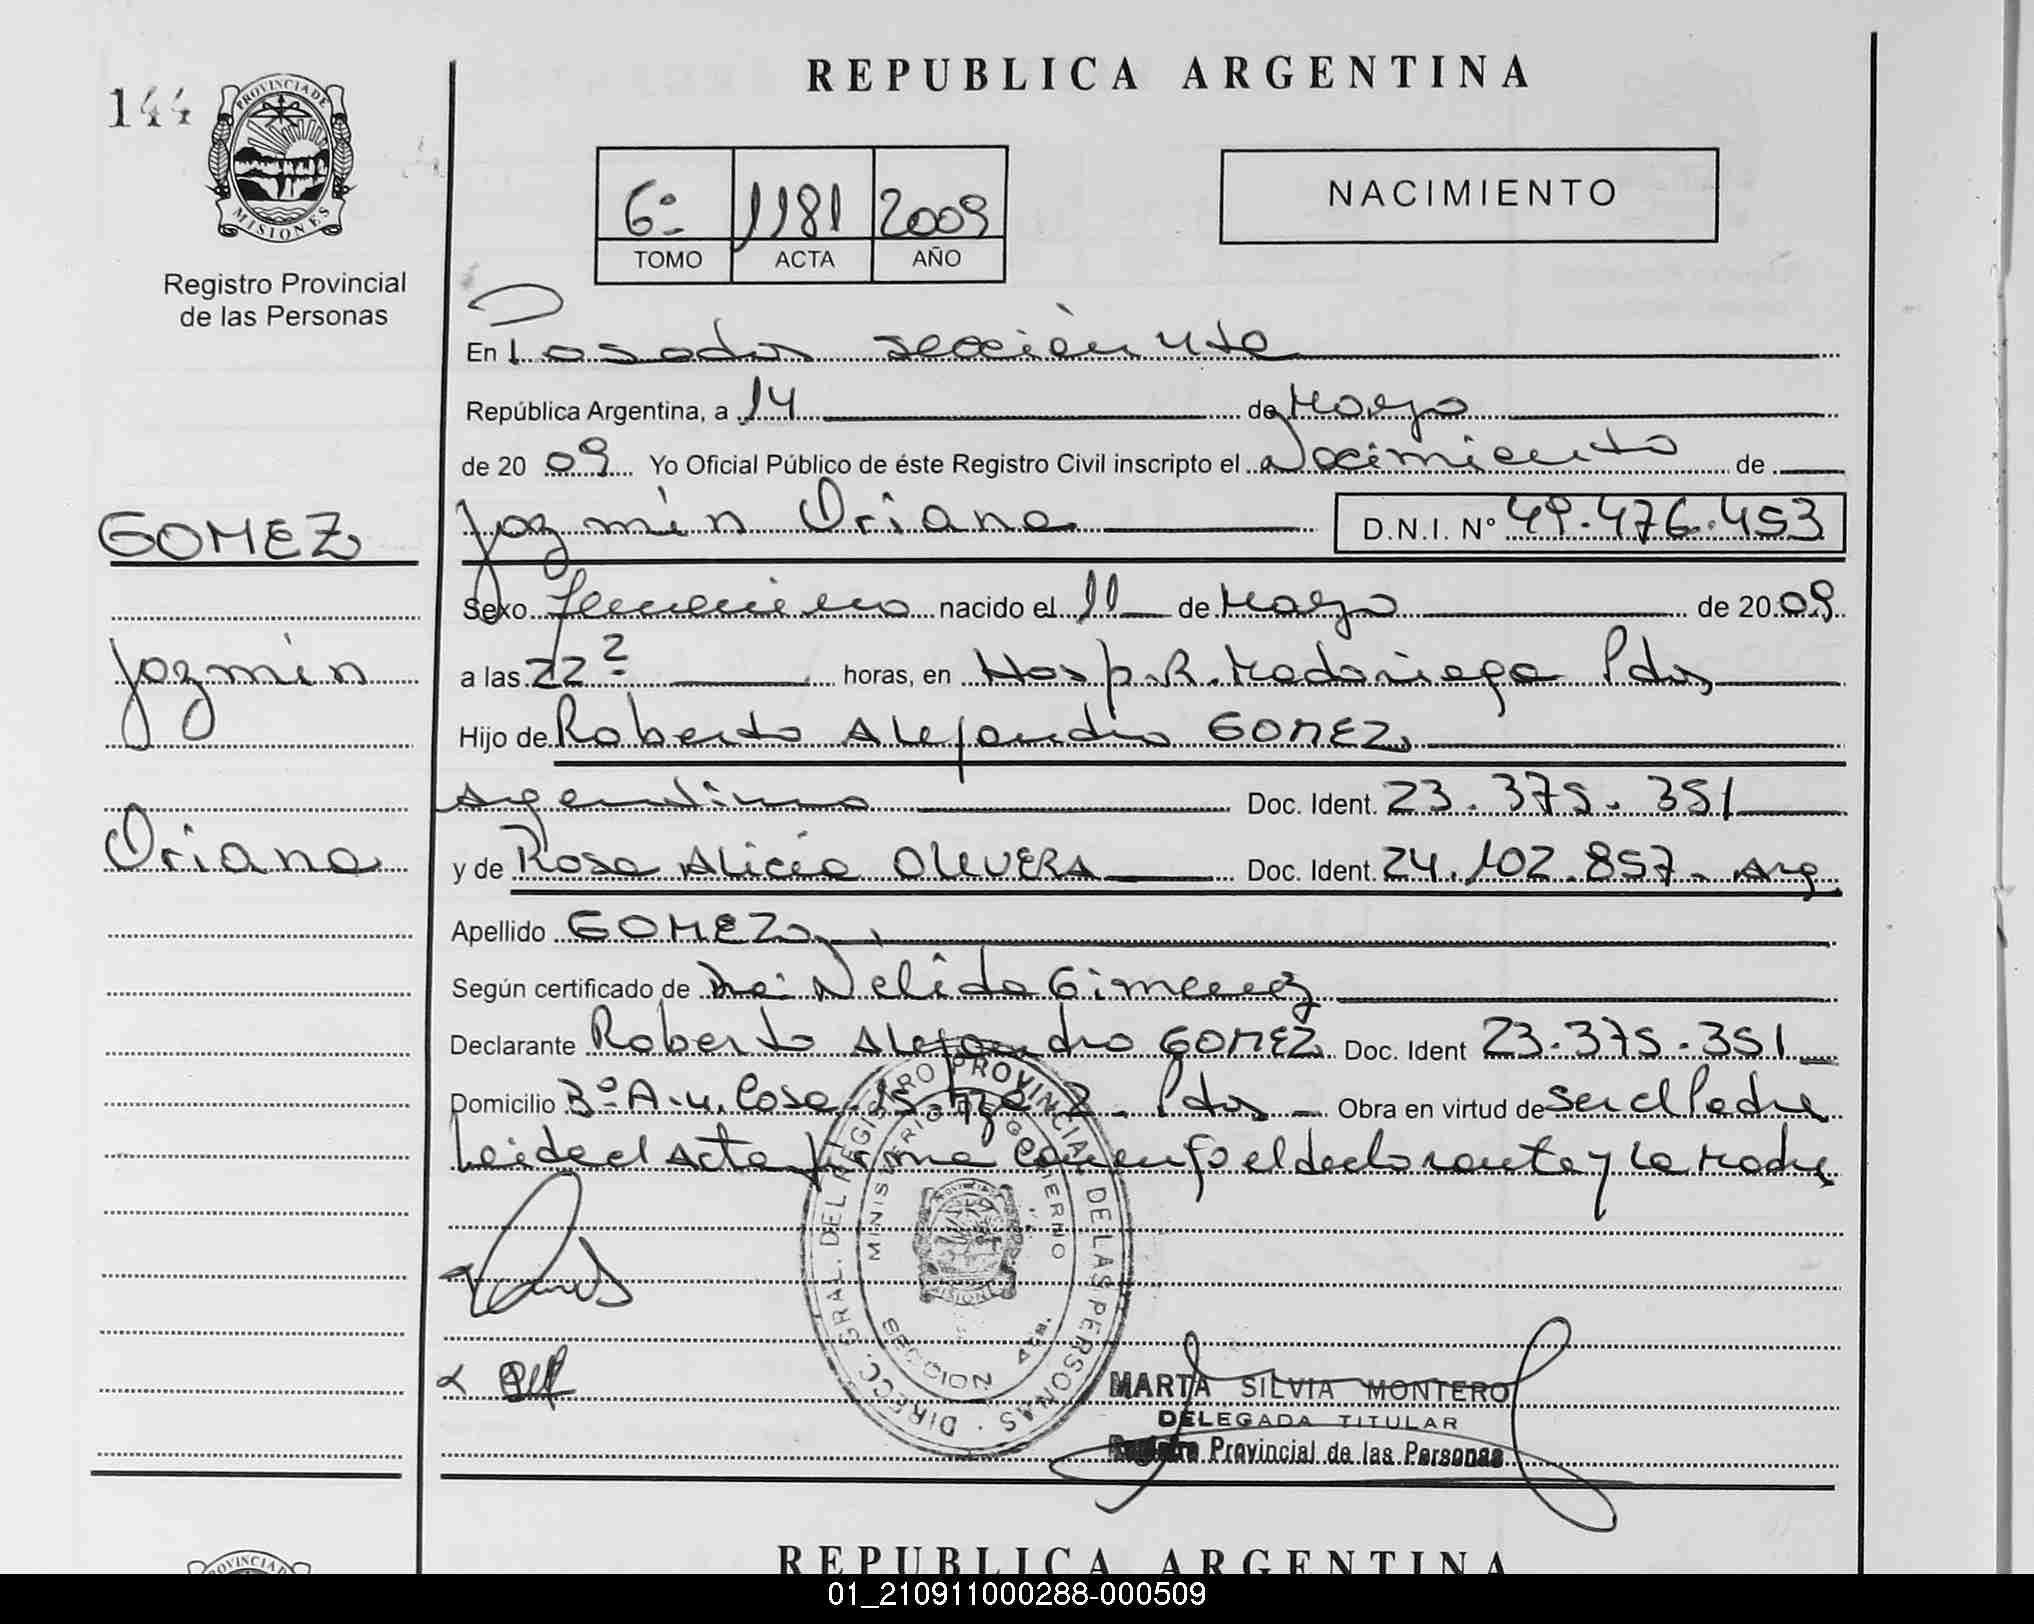 144
PROVINCIA DE
MISIONES
Registro Provincial
de las Personas
REPUBLICA ARGENTINA
6º 1181 2009
TOMO ACTA AÑO
NACIMIENTO
En Posadas sección 4ta
República Argentina, a 14 de Mayo
de 20 09 Yo Oficial Público de éste Registro Civil inscripto el Nacimiento de
GOMEZ
Jazmin
Oriana
Jazmin Oriana D.N.I. Nº 49.476.453
Sexo femenino nacido el 11 de Mayo de 20 09
a las 22 horas, en Hosp. R. Madariaga Pdas
Hijo de Roberto Alejandro GOMEZ
Argentino Doc. Ident. 23.375.351
y de Rosa Alicia OLIVERA Doc. Ident. 24.102.857 - Arg
Apellido GOMEZ
Según certificado de Dra: Nelida Gimenez
Declarante Roberto Alejandro GOMEZ Doc. Ident 23.375.351
Domicilio Casa 25 Pdas Obra en virtud de ser el Padre
Leida el Acta firma el declarante y la Madre
DIRECC. GRAL. DEL REGISTRO PROVINCIAL DE LAS PERSONAS
MINISTERIO DE GOBIERNO
MISIONES
SECCION 4TA.
MARTA SILVIA MONTERO
DELEGADA TITULAR
Registro Provincial de las Personas
PROVINCIA
REPUBLICA ARGENTINA
01_210911000288-000509